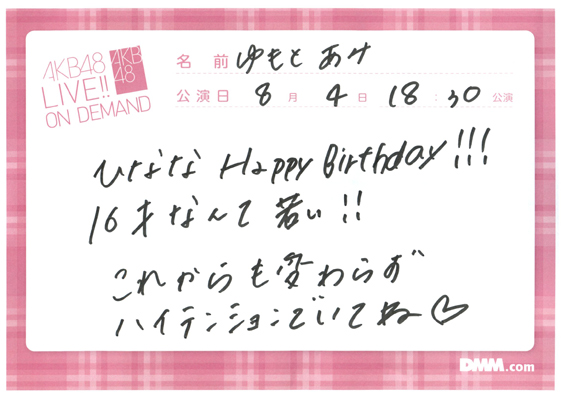 AKB48
LIVE!!
ON DEMAND
AKB
48
名前 ゆもと あみ
公演日 8月 4日 18:30公演
ひなな Happy Birthday!!!
16才なんて 若い!!
これからも変わらず
ハイテンションでいてね♡
DMM.com